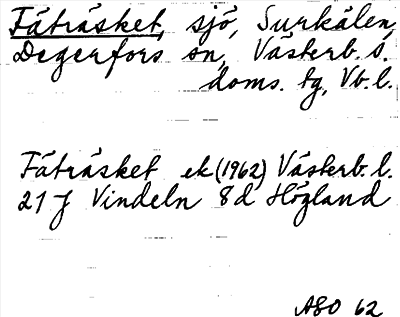 Fäträsket, sjö, Surkålen,
Degerfors sn, Västerb. s.
doms. tg, Vb. l.
Fäträsket ek (1962) Västerb. l.
21 J Vindeln 8d Högland
ASO 62